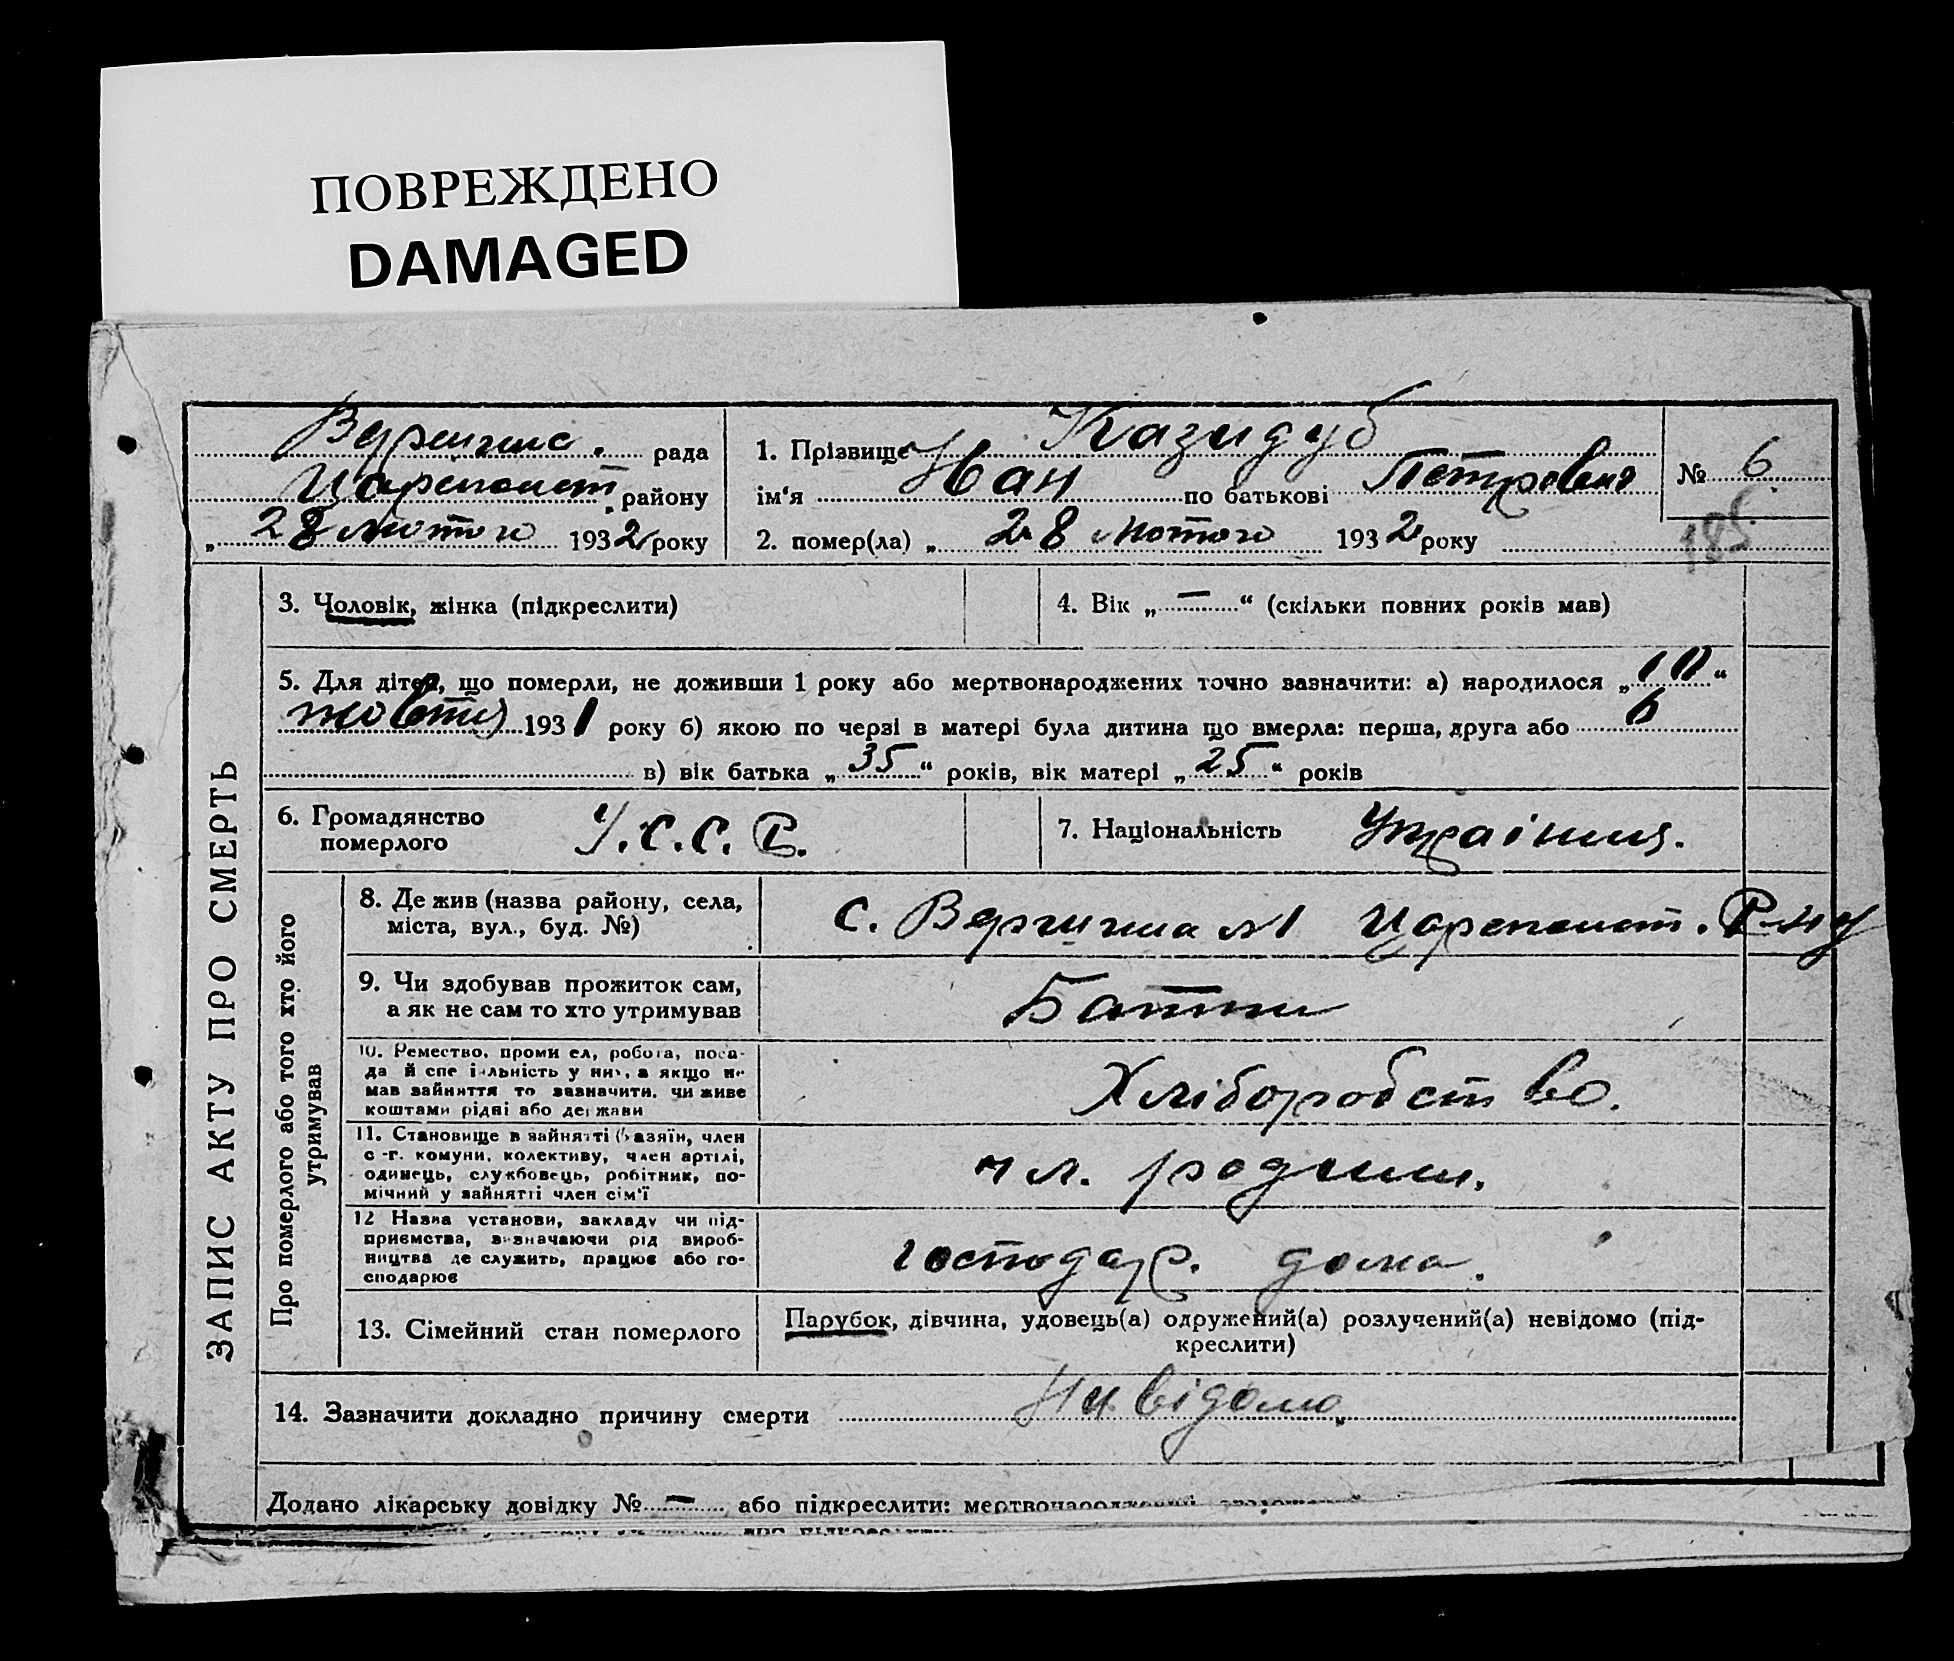 ПОВРЕЖДЕНО
DAMAGED
рада
району
„ 28 лютого 1932 року
1. Прізвище Казидуб
ім‘я Іван по батькові Петрович
2. помер(ла) „ 28 лютого 1932 року
№ 6
185
ЗАПИС АКТУ ПРО СМЕРТЬ
3. Чоловік, жінка (підкреслити)
4. Вік „ — “ (скільки повних років мав)
5. Для дітей, що померли, не доживши 1 року або мертвонароджених точно зазначити: а) народилося „ “
жовтня 1931 року б) якою по черзі в матері була дитина що вмерла: перша, друга або 6
в) вік батька „ 35 “ років, вік матері „ 25 “ років
6. Громадянство
померлого
У.С.С.Р.
7. Національність
Про померлого або того хто його
утримував
8. Де жив (назва району, села,
міста, вул., буд. №)
с. №1
9. Чи здобував прожиток сам,
а як не сам то хто утримував
Батьки
10. Ремество, проми ел, робота, поса-
да й спе і льність у ни , а якщо не
мав зайняття то зазначити, чи живе
коштами рідні або держави
Хліборобство.
11. Становище в зайнятті ( азяїн, член
с -г. комуни, колективу, член артілі,
одинець, службовець, робітник, по-
мічний у зайнятті член сім'ї
чл. родини.
12 Назва установи, закладу чи під-
приємства, визначаючи рід вироб-
ництва де служить, працює або го-
сподарює
господар. дома.
13. Сімейний стан померлого
Парубок, дівчина, удовець(а) одружений(а) розлучений(а) невідомо (під-
креслити)
14. Зазначити докладно причину смерти
Невідомо
Додано лікарську довідку № — або підкреслити: мертвонароджений